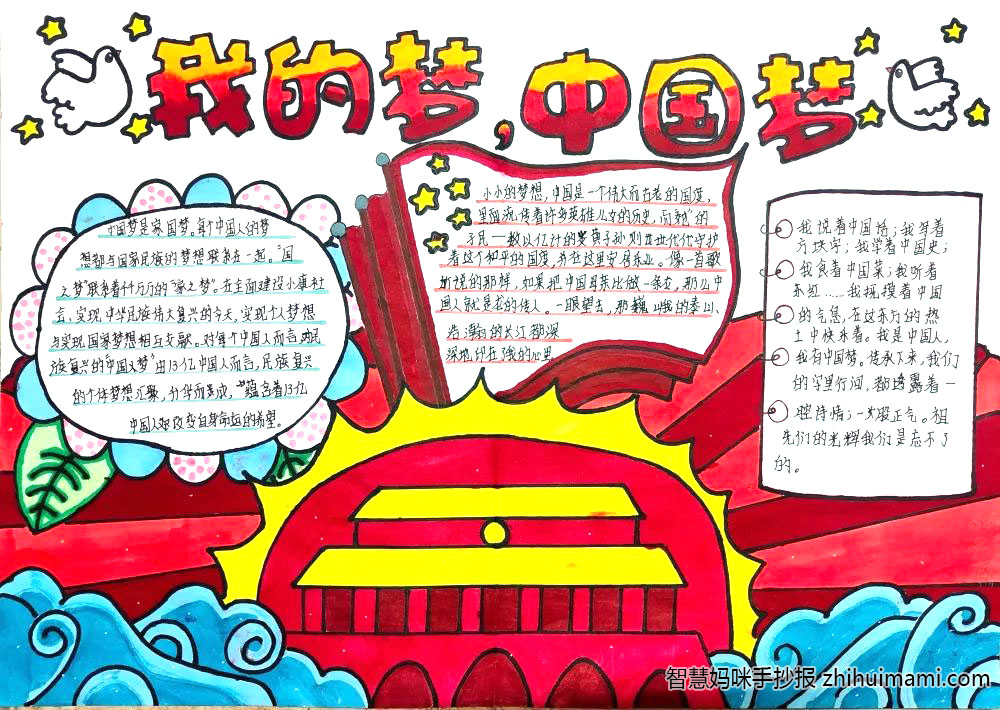 我的梦,中国梦
中国梦是家国梦。每个中国人的梦
想都与国家民族的梦想联系在一起。“国
之梦”联系着千千万万的“家之梦”。在全面建设小康社
会,实现中华民族伟大复兴的今天,实现个人梦想
与实现国家梦想相互交融。对每个中国人而言,对民
族复兴的“中国人梦”由13亿中国人而言,民族复兴
的个体梦想汇聚,升华而美成,“蕴含着13亿
中国人对改变自身命运的希望。
小小的梦想,中国是一个伟大而古老的国度,
里面流传着许多英雄儿女的历史,而勤 的
子民——数以亿计的炎黄子孙则世世代代守护
着这个和平的国度,并在这里安居乐业。像一首歌
所说的那样,如果把中国母亲比做一条龙,那么中
国人就是龙的传人。一眼望去,那巍峨的泰山、
浩瀚的长江都深
深地印在我的心里
我说着中国话;我写着
方块字;我学着中国史;
我食着中国菜;我听着
东红……我抚摸着中国
的气息,在这东方的热
土中快乐着。我是中国人,
我有中国梦。传承下来,我们
的字里行间,都透露着一
股诗情;一步股正气。祖
先们的光辉我们是忘不了
的。
智慧妈咪手抄报 zhihuimami.com